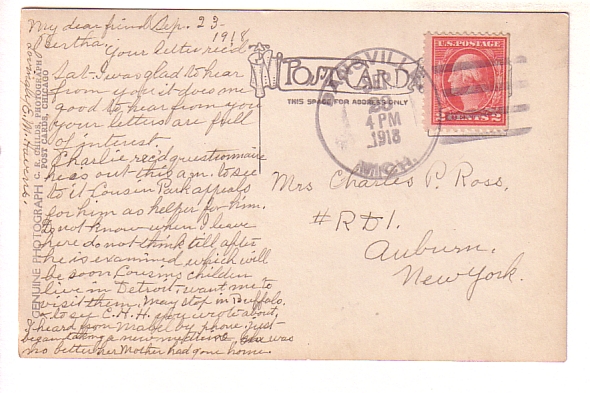 My dear friend Sep. 23-
Bertha 1918
Your letter rec'd
Sat- I was glad to hear
from you it does me
good to hear from you
your letters are full
of interest.
Charlie rec'd questionnaire
he is out this a.m. to see
to it Cousin Park appeals
for him as helper for him.
Do not know when I leave
here do not think till after
he is examined which will
be soon Cousins children
live in Detroit, want me to
visit them. May stop in Buffalo
to see C. H. H. you wrote about,
I heard from Mabel by phone, just
began taking a new medicine, she was
no better her Mother had gone home.
GENUINE PHOTOGRAPH
C. R. CHILDS, PHOTOGRAPH
POST CARDS, CHICAGO
POST CARD
THIS SPACE FOR ADDRESS ONLY
4 PM
1918
MICH.
U.S. POSTAGE
2 CENTS 2
Mrs Charles P. Ross,
#RD1.
Auburn,
New York.